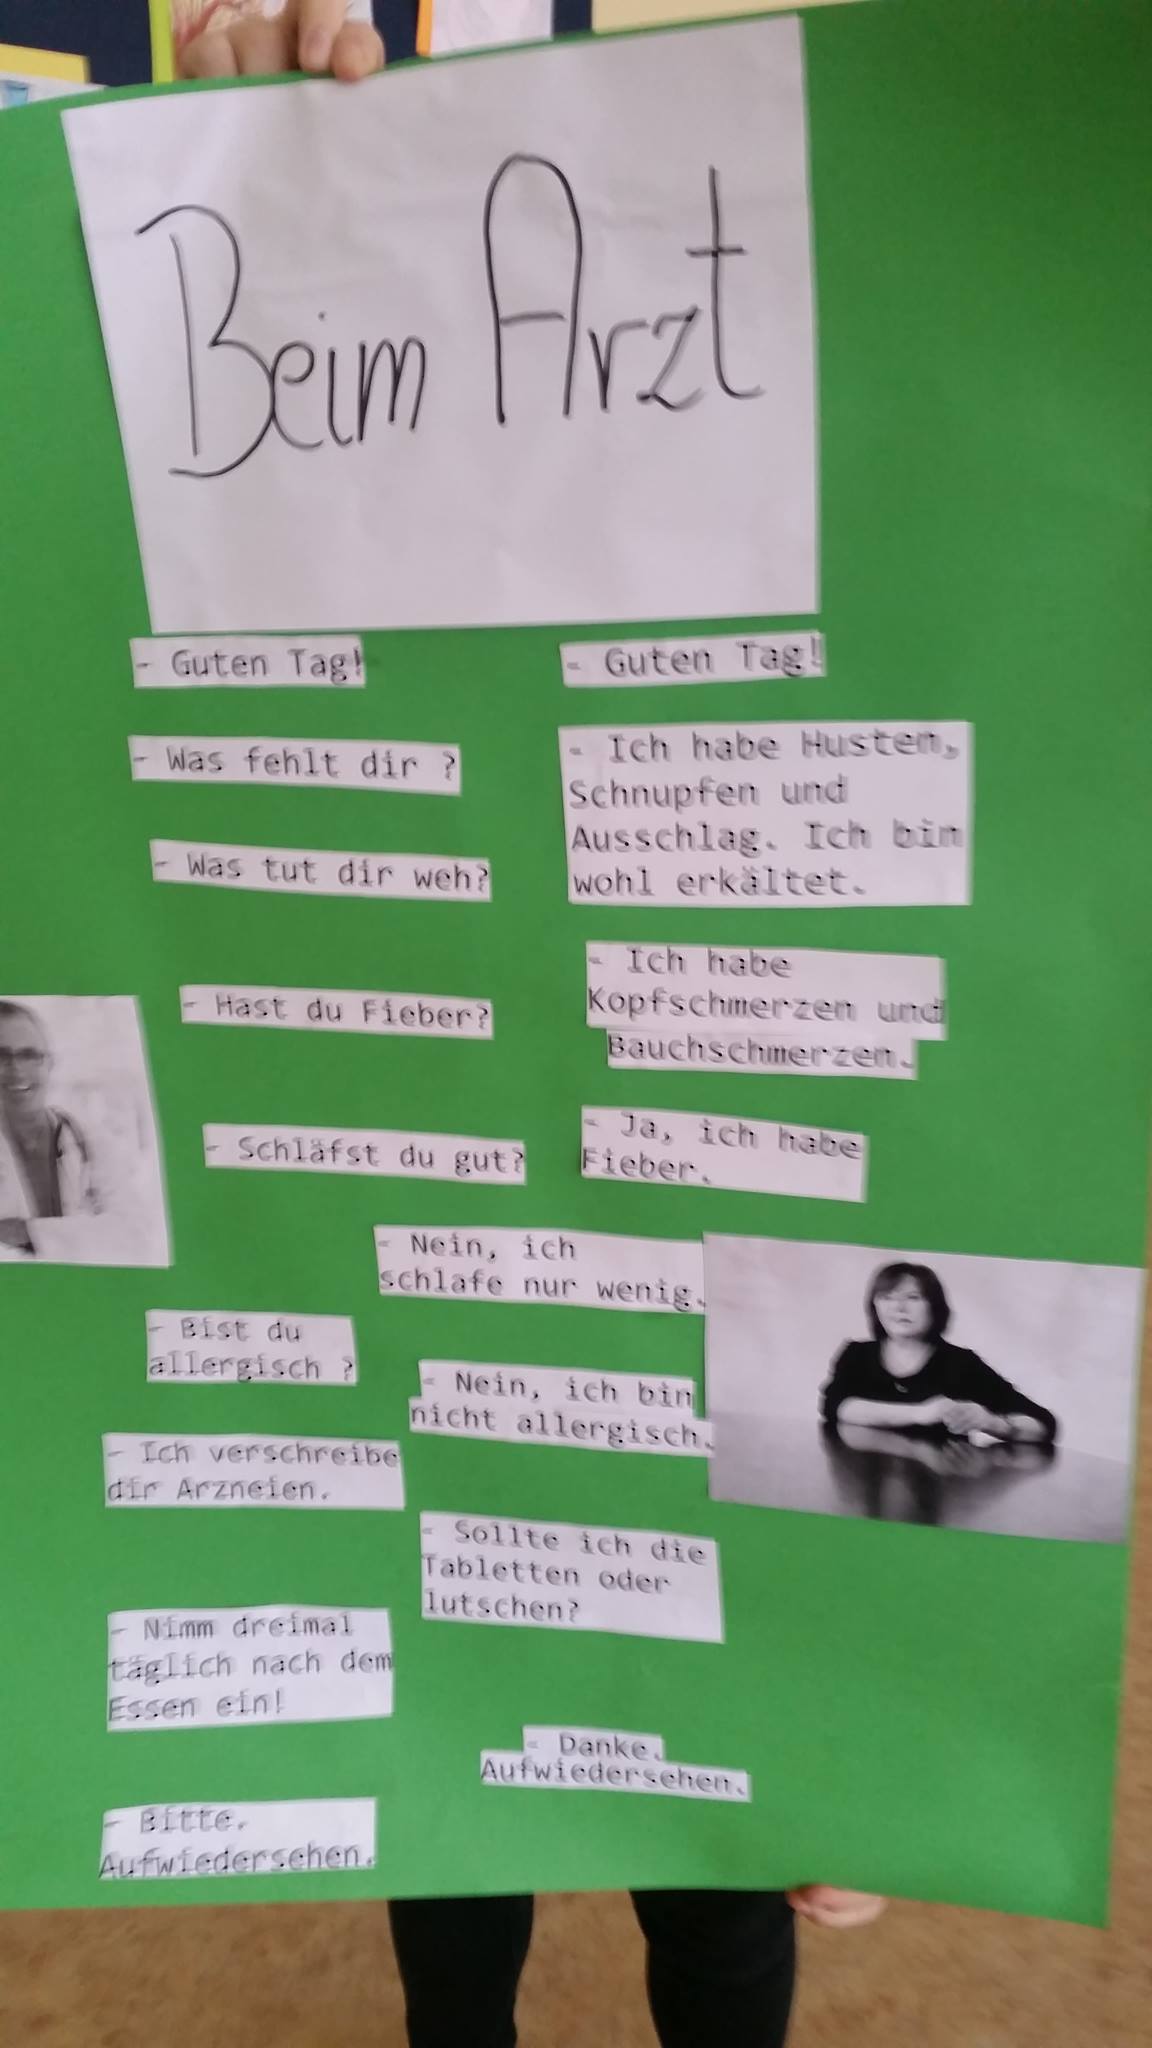 Beim Arzt
- Guten Tag!
- Guten Tag!
- Was fehlt dir ?
- Ich habe Husten,
Schnupfen und
Ausschlag. Ich bin
wohl erkältet.
- Was tut dir weh?
- Ich habe
Kopfschmerzen und
Bauchschmerzen.
- Hast du Fieber?
- Ja, ich habe
Fieber.
- Schläfst du gut?
- Nein, ich
schlafe nur wenig.
- Bist du
allergisch ?
- Nein, ich bin
nicht allergisch.
- Ich verschreibe
dir Arzneien.
- Sollte ich die
Tabletten oder
lutschen?
- Nimm dreimal
täglich nach dem
Essen ein!
- Danke.
Aufwiedersehen.
- Bitte.
Aufwiedersehen.